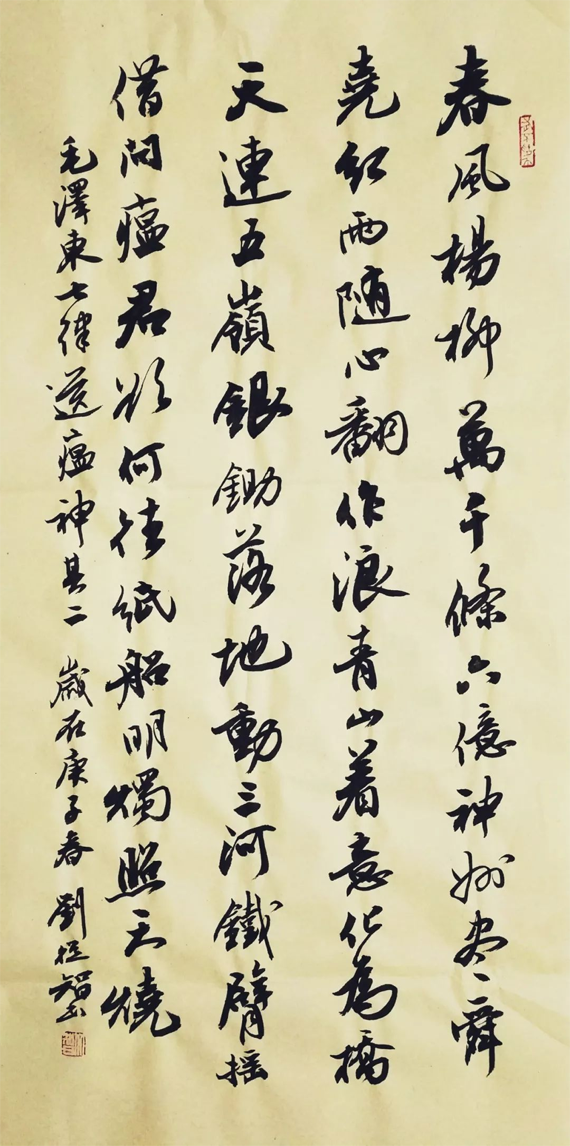 春風楊柳萬千條六億神州尽舜
堯紅雨随心翻作浪青山着意化為橋
天連五嶺銀鋤落地動三河鐵臂摇
借問瘟君欲何往紙船明燭照天燒
毛澤東七律送瘟神其二 歲在庚子春劉恒智书